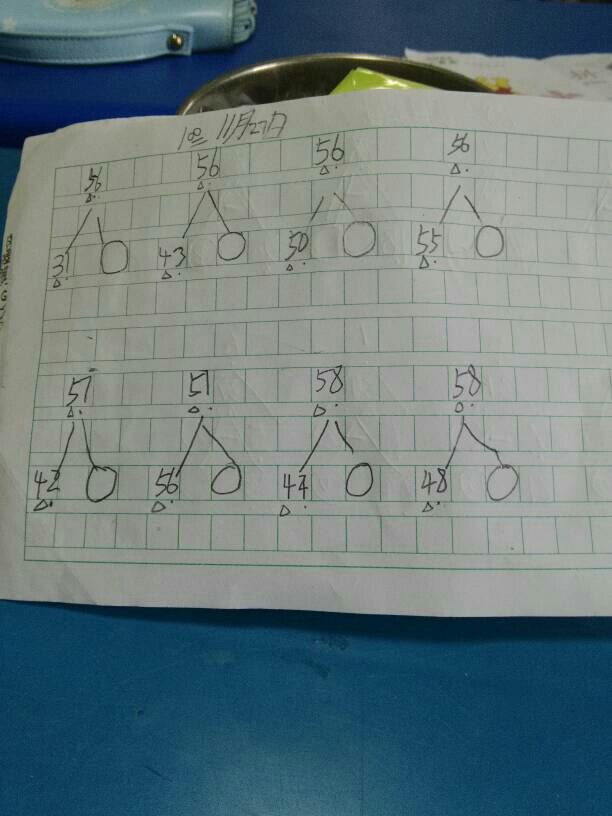 11月27日
56 56 56 56
31 43 50 55
57 57 58 58
42 56 47 48